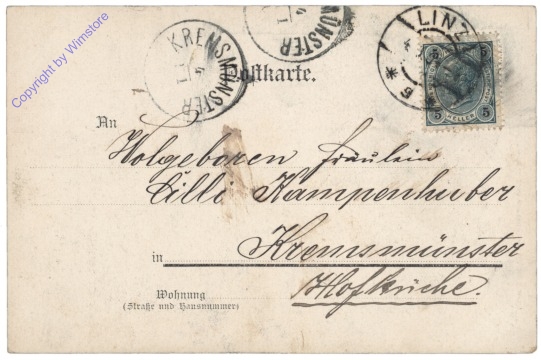 Copyright by Wimstore
KREMSMÜNSTER
MÜNSTER
LINZ
6
Postkarte.
5 5
HELLER
An
Wolgeboren Fräulein
Cilli Kampenhuber
in Kremsmünster
Hofküche.
Wohnung
(Straße und Hausnummer)